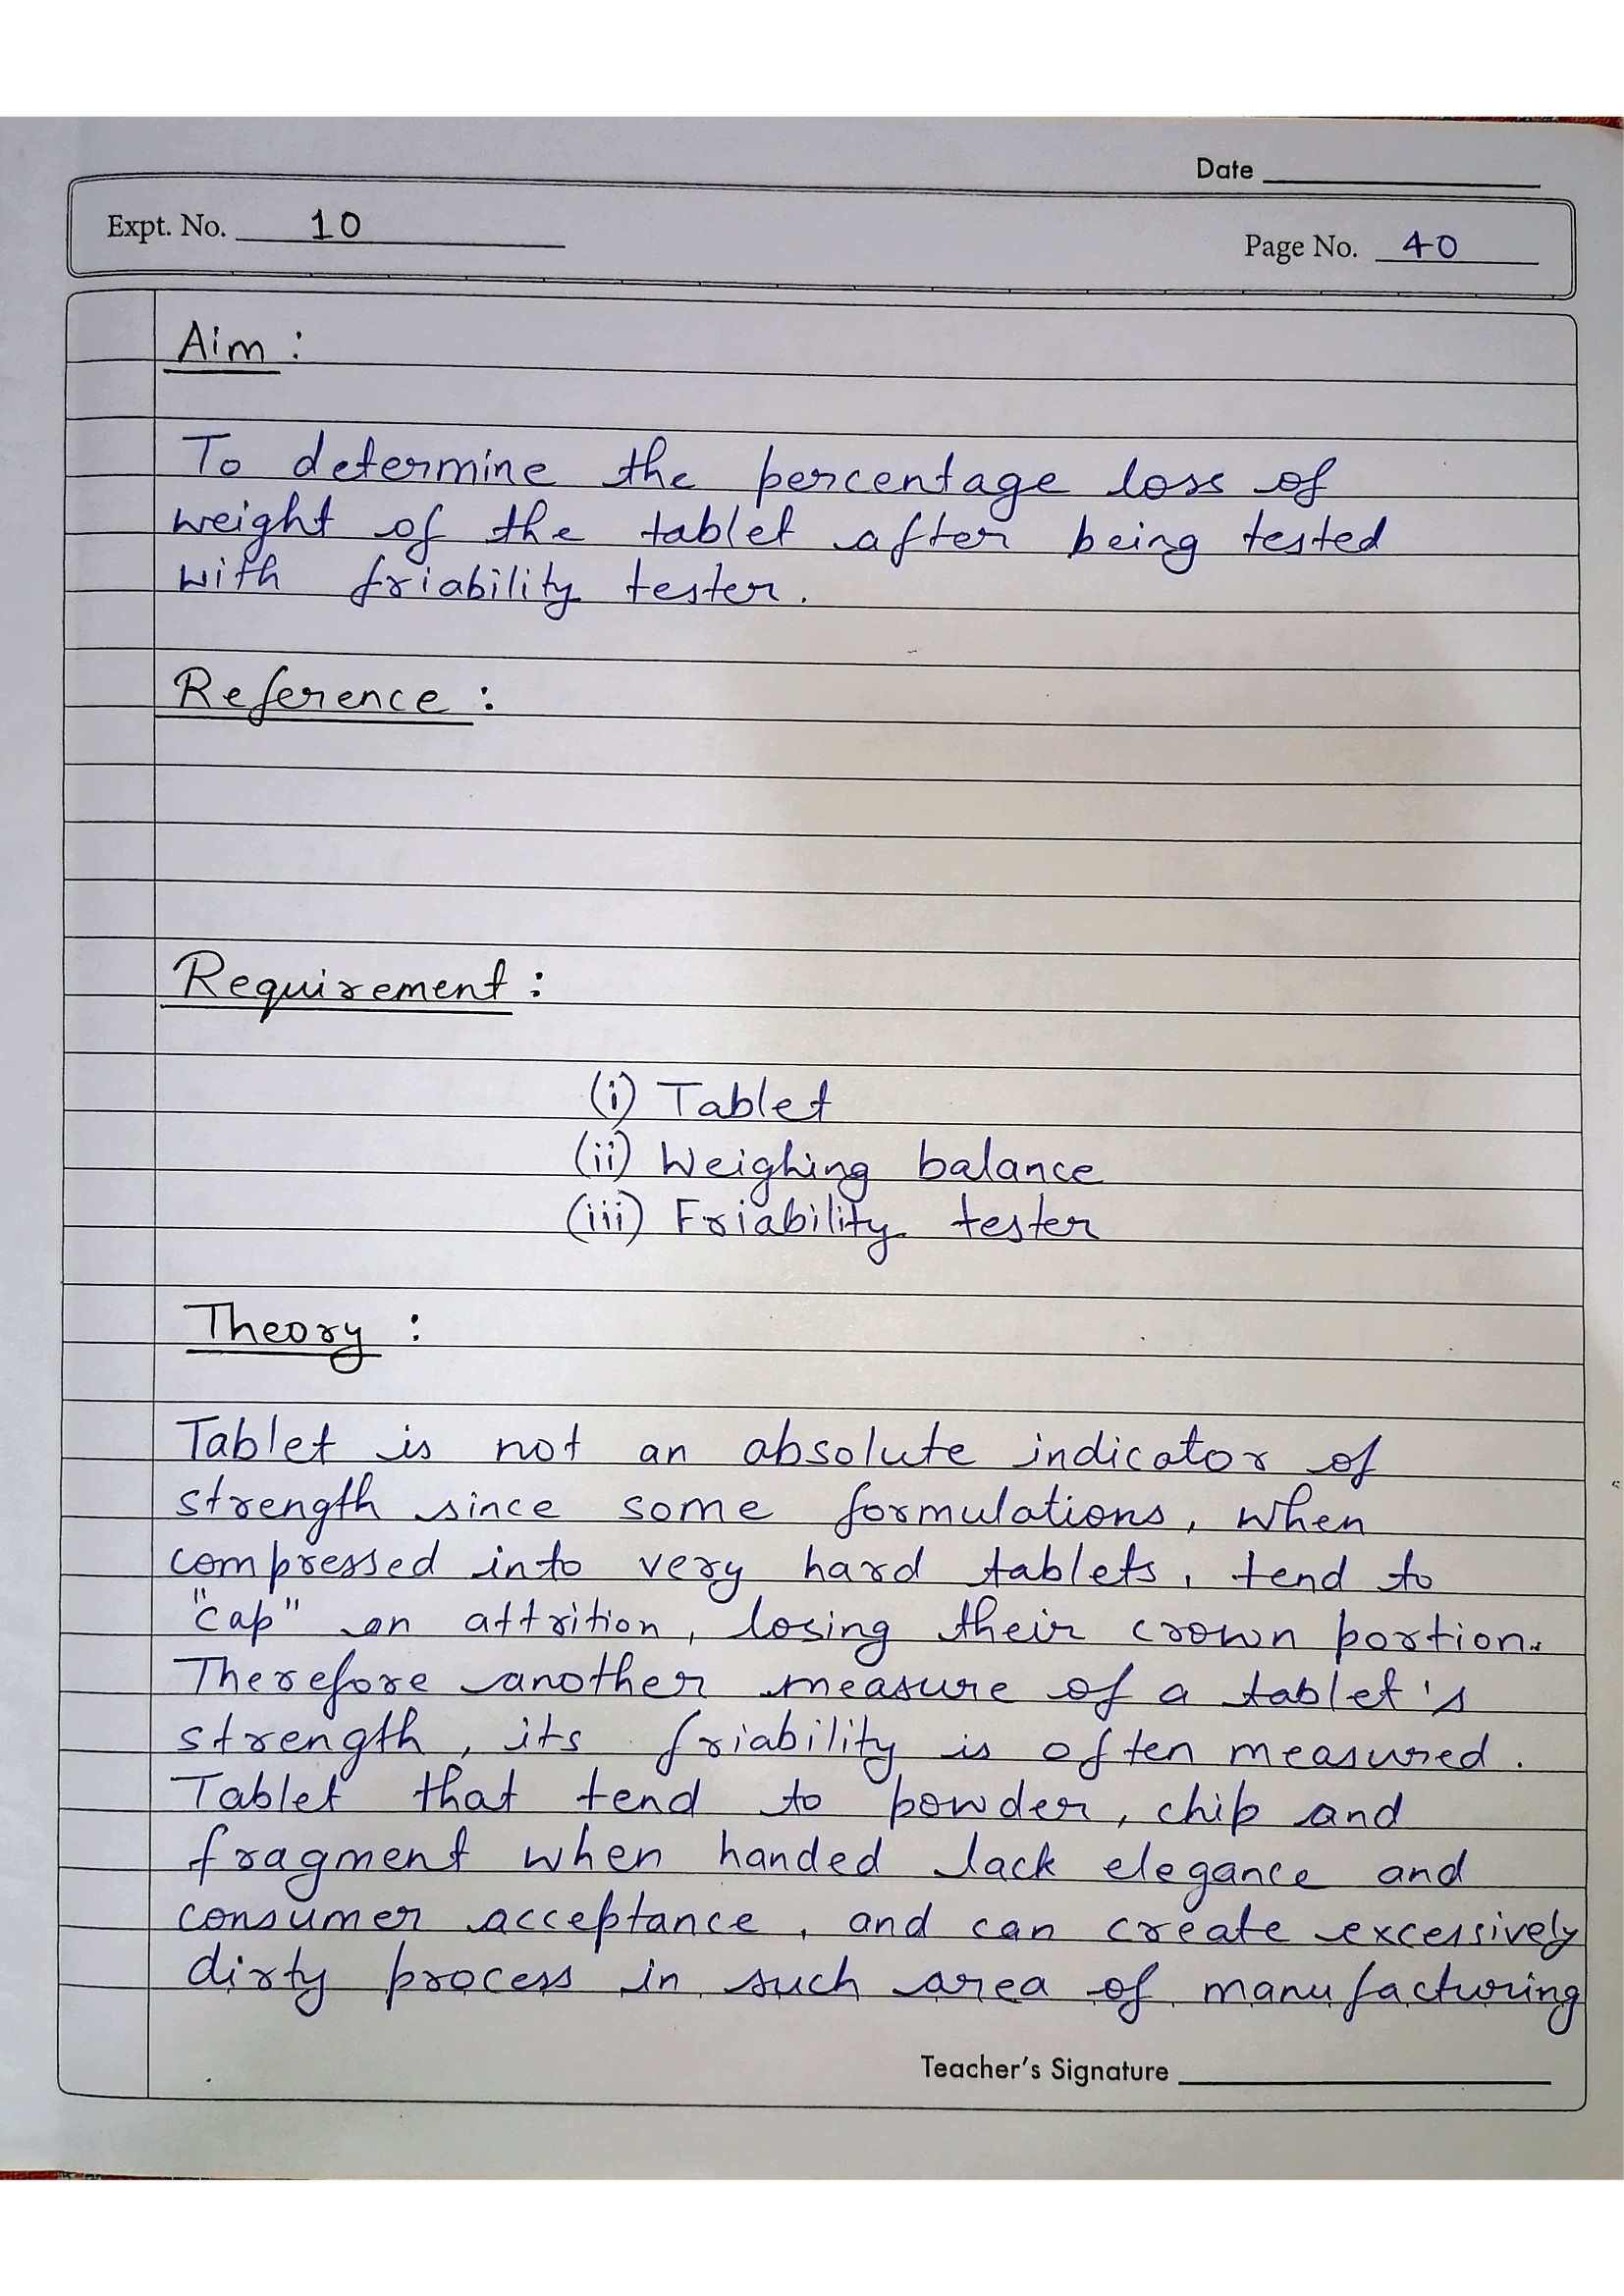 Date
Expt. No. 10
Page No. 40
Aim :
To determine the percentage loss of
weight of the tablet after being tested
with friability tester.
Reference :
Requirement :
(i) Tablet
(ii) Weighing balance
(iii) Friability tester
Theory :
Tablet is not an absolute indicator of
strength since some formulations, when
compressed into very hard tablets, tend to
"cap" on attrition, losing their crown portion.
Therefore another measure of a tablet's
strength, its friability is often measured.
Tablet that tend to powder, chip and
fragment when handed lack elegance and
consumer acceptance, and can create excessively
dirty process in such area of manufacturing
Teacher's Signature